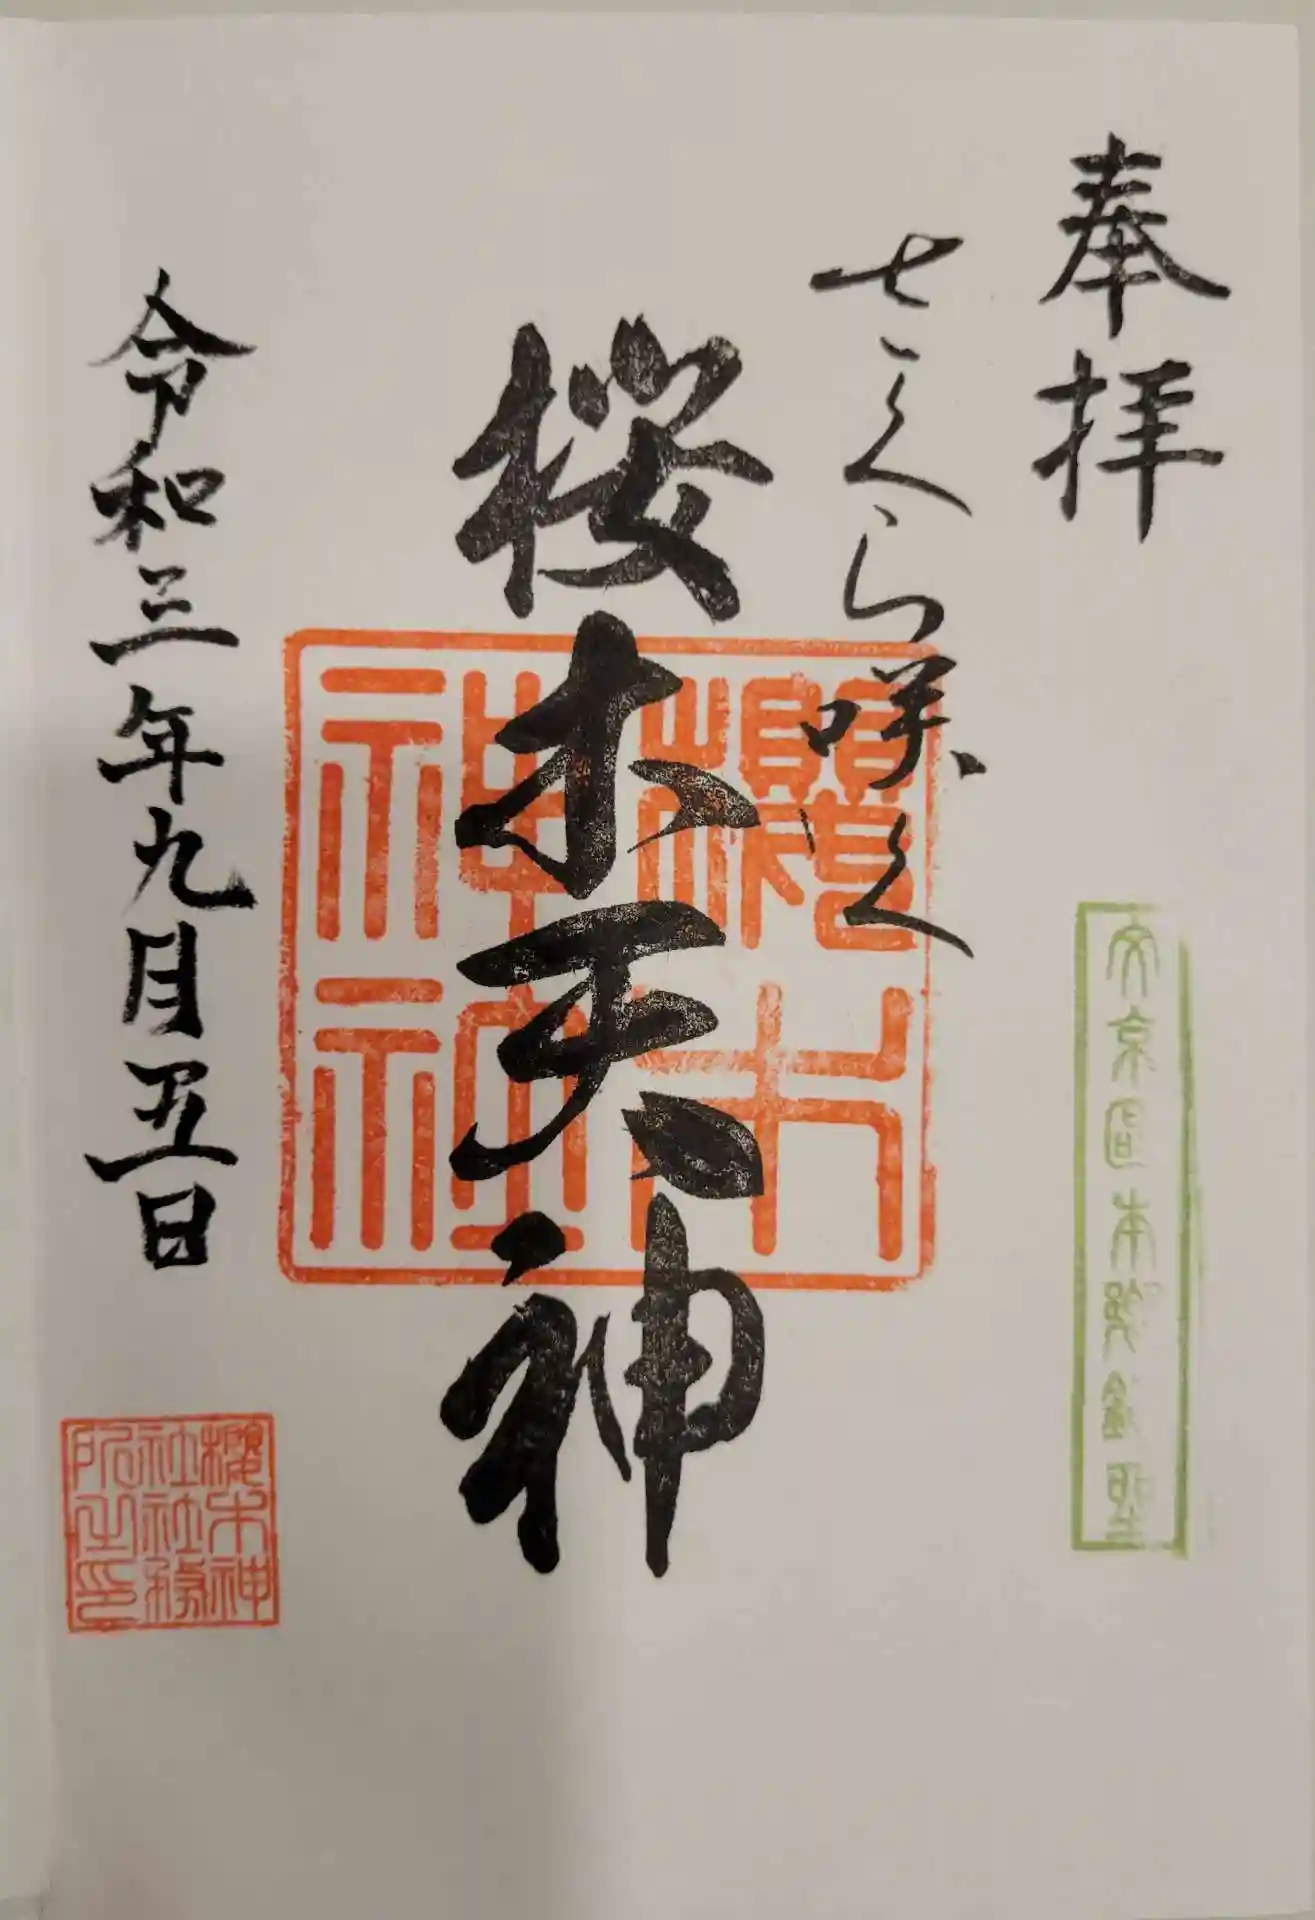 奉拝
さくら咲く
桜木天神
櫻木神社
令和三年九月五日
文京区本郷鎮聖
櫻木神社社務所之印